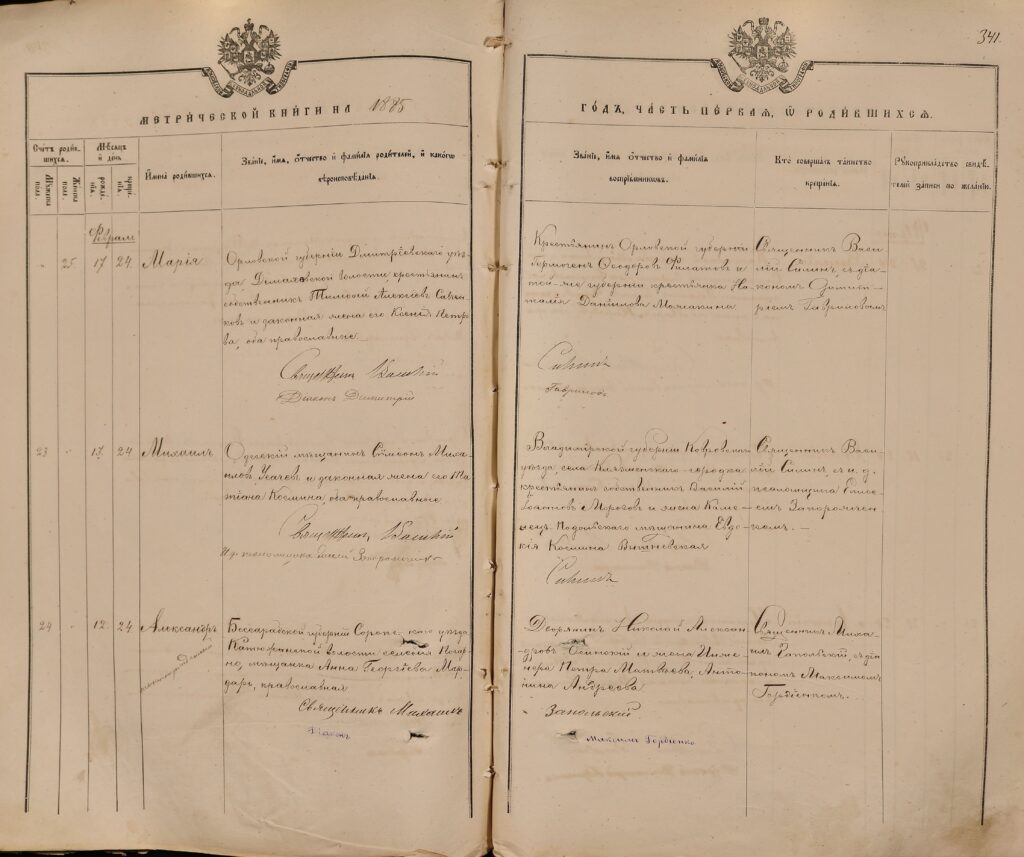 341.
МЕТРИЧЕСКОЙ КНИГИ НА 1885
ГОДЪ, ЧАСТЬ ПЕРВАЯ, Ѡ РОДИВШИХСЯ.
Счётъ родив-
шихся.
Мѣсяцъ
и день
Мужеска
полъ.
Женска
полъ.
рожде-
нія.
креще-
нія.
Имена родившихся.
Званіе, имя, отчество и фамилія родителей, и какого
вѣроисповѣданія.
Званіе, имя, отчество и фамилія
воспріемниковъ.
Кто совершалъ таинство
крещенія.
Рукоприкладство свидѣ-
телей записи по желанію.
Февраль
25 17 24
Марія
Орловской губерніи Дмитровскаго уѣз-
да, волости крестьянинъ
собственникъ Тимофей Алексѣевъ
и законная жена его Ксенія Петро-
ва, оба православные
Священникъ Василій
Діаконъ Димитрій
Крестьянинъ Орловской губерніи
Гермогенъ Ѳеодоровъ Филатовъ и
той-же губерніи крестьянка На-
талія Даниилова
Силинъ
Гавриловъ
Священникъ Васи-
лій Силинъ, съ діа-
кономъ Димитрі-
емъ Гавриловымъ
23 17 24
Михаилъ
Одесскій мѣщанинъ Сѵмеонъ Миха-
иловъ Усачевъ и законная жена его Та-
тіана Космина, оба православные
Священникъ Василій
И. д. псаломщика
Владимірской губерніи Ковровскаго
уѣзда, села Клязьменскаго городка
крестьянинъ собственникъ Василій
и жена Каме-
нецъ-Подольскаго мѣщанина Евдо-
кія Космина Вишневская
Силинъ
Священникъ Васи-
лій Силинъ, съ и. д.
псаломщика Елисе-
емъ
24 12 24
Александръ
Бессарабской губерніи Сорокскаго уѣзда
волости селенія
мѣщанка Анна Георгіева Мар-
дарь, православная
Священникъ Михаилъ
Діаконъ
Дворянинъ Николай Алексан-
дровъ и жена Инже-
нера Петра Матвѣева, Анто-
нина Андреева
Запольскій
Максимъ Гордіенко
Священникъ Миха-
илъ Запольскій, съ діа-
кономъ Максимомъ
Гордіенкомъ.